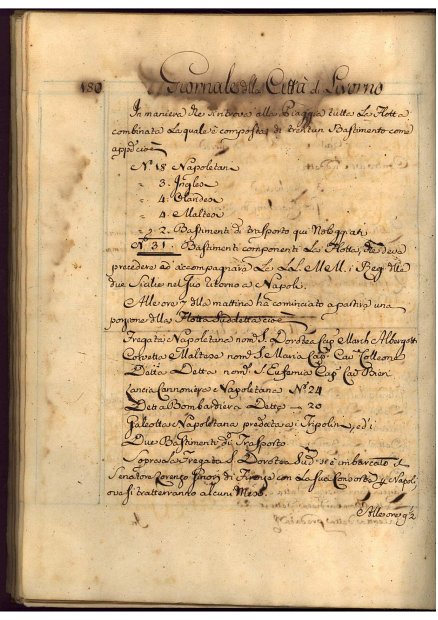 180 Giornale della Città di Livorno
In maniera che si ritrova alla Piaggia tutta La Flotta
combinata La quale è composta di trentun Bastimento come
app.e cioè
N.° 18 Napoletani
" 3. Inglesi
" 4. Olandesi
" 4 Maltesi
" 2. Bastimenti di trasporto qui
N.° 31. Bastimenti componenti La Flotta, che deve
precedere ed accompagnare Le LL. MM. i Re delle
due Sicilie nel suo ritorno a Napoli.
Alle ore 7 della mattina ha cominciato a partire una
porzione della Flotta suddetta cioè
Fregata Napoletana nom.a S. Dorotea Cap.
Corvetta Maltese nom.a S. Maria Cap. Cav.
Detta Detta nom.a S. Eufemia Cap. Cav.
Lancia Cannoniera Napoletana N.° 24
Detta Bombardiera Detta — 20
Galeotta Napoletana predata a Tripolini, ed i
Due Bastimenti di Trasporto
Sopra La Fregata S. Dorotea Sud.a si è imbarcato il
Senatore Lorenzo Ginori di Firenze con La sua Consorte p. Napoli
ove si tratterranno alcuni Mesi.
Alle ore 9½